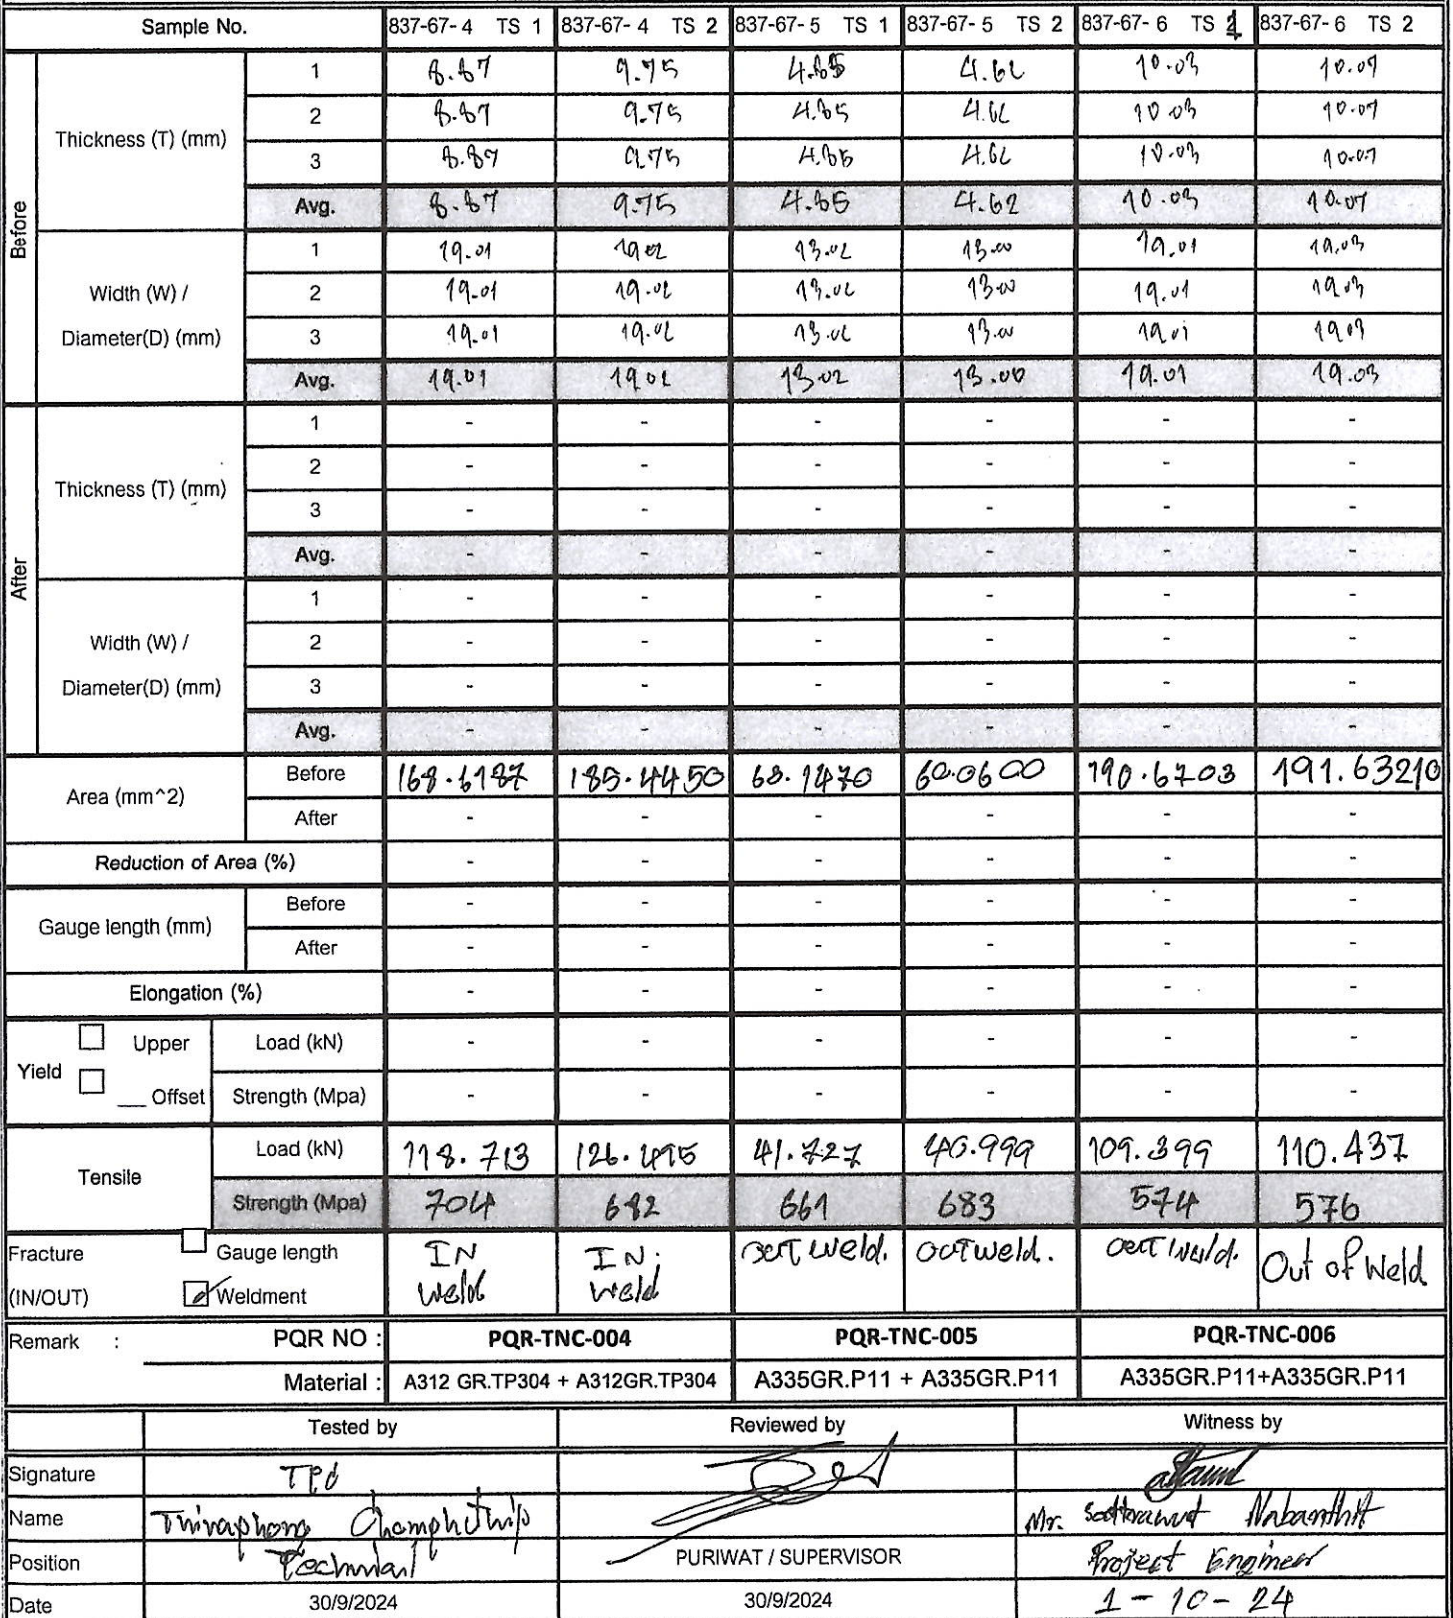 Sample No. 837-67- 4 TS 1 837-67- 4 TS 2 837-67- 5 TS 1 837-67- 5 TS 2 837-67- 6 TS 1 837-67- 6 TS 2
Before
Thickness (T) (mm)
1 8.87 9.75 4.85 4.62 10.03 10.07
2 8.87 9.75 4.85 4.62 10.03 10.07
3 8.87 9.75 4.85 4.62 10.03 10.07
Avg. 8.87 9.75 4.85 4.62 10.03 10.07
Width (W) /
Diameter(D) (mm)
1 19.01 19.02 13.02 13.00 19.01 19.03
2 19.01 19.02 13.02 13.00 19.01 19.03
3 19.01 19.02 13.02 13.00 19.01 19.03
Avg. 19.01 19.02 13.02 13.00 19.01 19.03
After
Thickness (T) (mm)
1 - - - - - -
2 - - - - - -
3 - - - - - -
Avg. - - - - - -
Width (W) /
Diameter(D) (mm)
1 - - - - - -
2 - - - - - -
3 - - - - - -
Avg. - - - - - -
Area (mm^2)
Before 168.6187 185.4450 63.1470 60.0600 190.6703 191.63210
After - - - - - -
Reduction of Area (%) - - - - - -
Gauge length (mm)
Before - - - - - -
After - - - - - -
Elongation (%) - - - - - -
Yield
Upper
___ Offset
Load (kN) - - - - - -
Strength (Mpa) - - - - - -
Tensile
Load (kN) 118.713 126.495 41.727 40.999 109.399 110.437
Strength (Mpa) 704 682 661 683 574 576
Fracture
(IN/OUT)
Gauge length
Weldment
IN weld IN. weld out weld. out weld. out weld. Out of Weld
Remark : PQR NO : PQR-TNC-004 PQR-TNC-005 PQR-TNC-006
Material : A312 GR.TP304 + A312GR.TP304 A335GR.P11 + A335GR.P11 A335GR.P11+A335GR.P11
Tested by Reviewed by Witness by
Signature
Name Mr.
Position PURIWAT / SUPERVISOR Project Engineer
Date 30/9/2024 30/9/2024 1 - 10 - 24